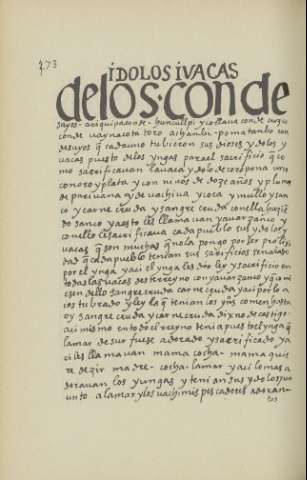 273
ÍDOLOS I VACAS
delos·conde
suyos - ariquipa cio de - huncullpi y collaua conde - cuzco
conde uaynacota toro achanbi - poma tanbo con
desuyos q̃ cada uno tubieron sus dioses y dolos y
uacas puesto de los yngas para el sacrificio q̃ co
mo sacrificauan la uaca y dolo de coropona un
con oro y plata y con niños de doze años y pluma
de pariuana y de uachiua y coca y mullo y san
co y carne cruda y sangre cruda con ella hazi
do sanco y a esto les llamauan yauar zanco y
con ello les sacrificaua cada pueblo sus ydolos y
uacas q̃ son muchos q̃ no la pongo por ser proli
dad q̃ cada pueblo tenian sus sacrificios señalado
por el ynga y aci el ynga les dio ley y sacrificio en
todas las uacas deste rreyno con yauar zanco y q̃ co
esen dello sangre cruda carne cruda y aci por lo a
costunbrado y ley la q̃ tenian los ynˢ comen hasta
oy sangre cruda y carne cruda dixno de castigo -
aci mismo en todo el rreyno tenia puestoel ynga q̃
la mar de sur fuese adorado y sacrificado y a
ci les llamauan mama cocha - mama quie
re dezir madre - cocha - la mar y aci lo mas a
dorauan los yungas y teni an sus ydolos ju
unto a la mar y los uachimis pescadores adoran
los